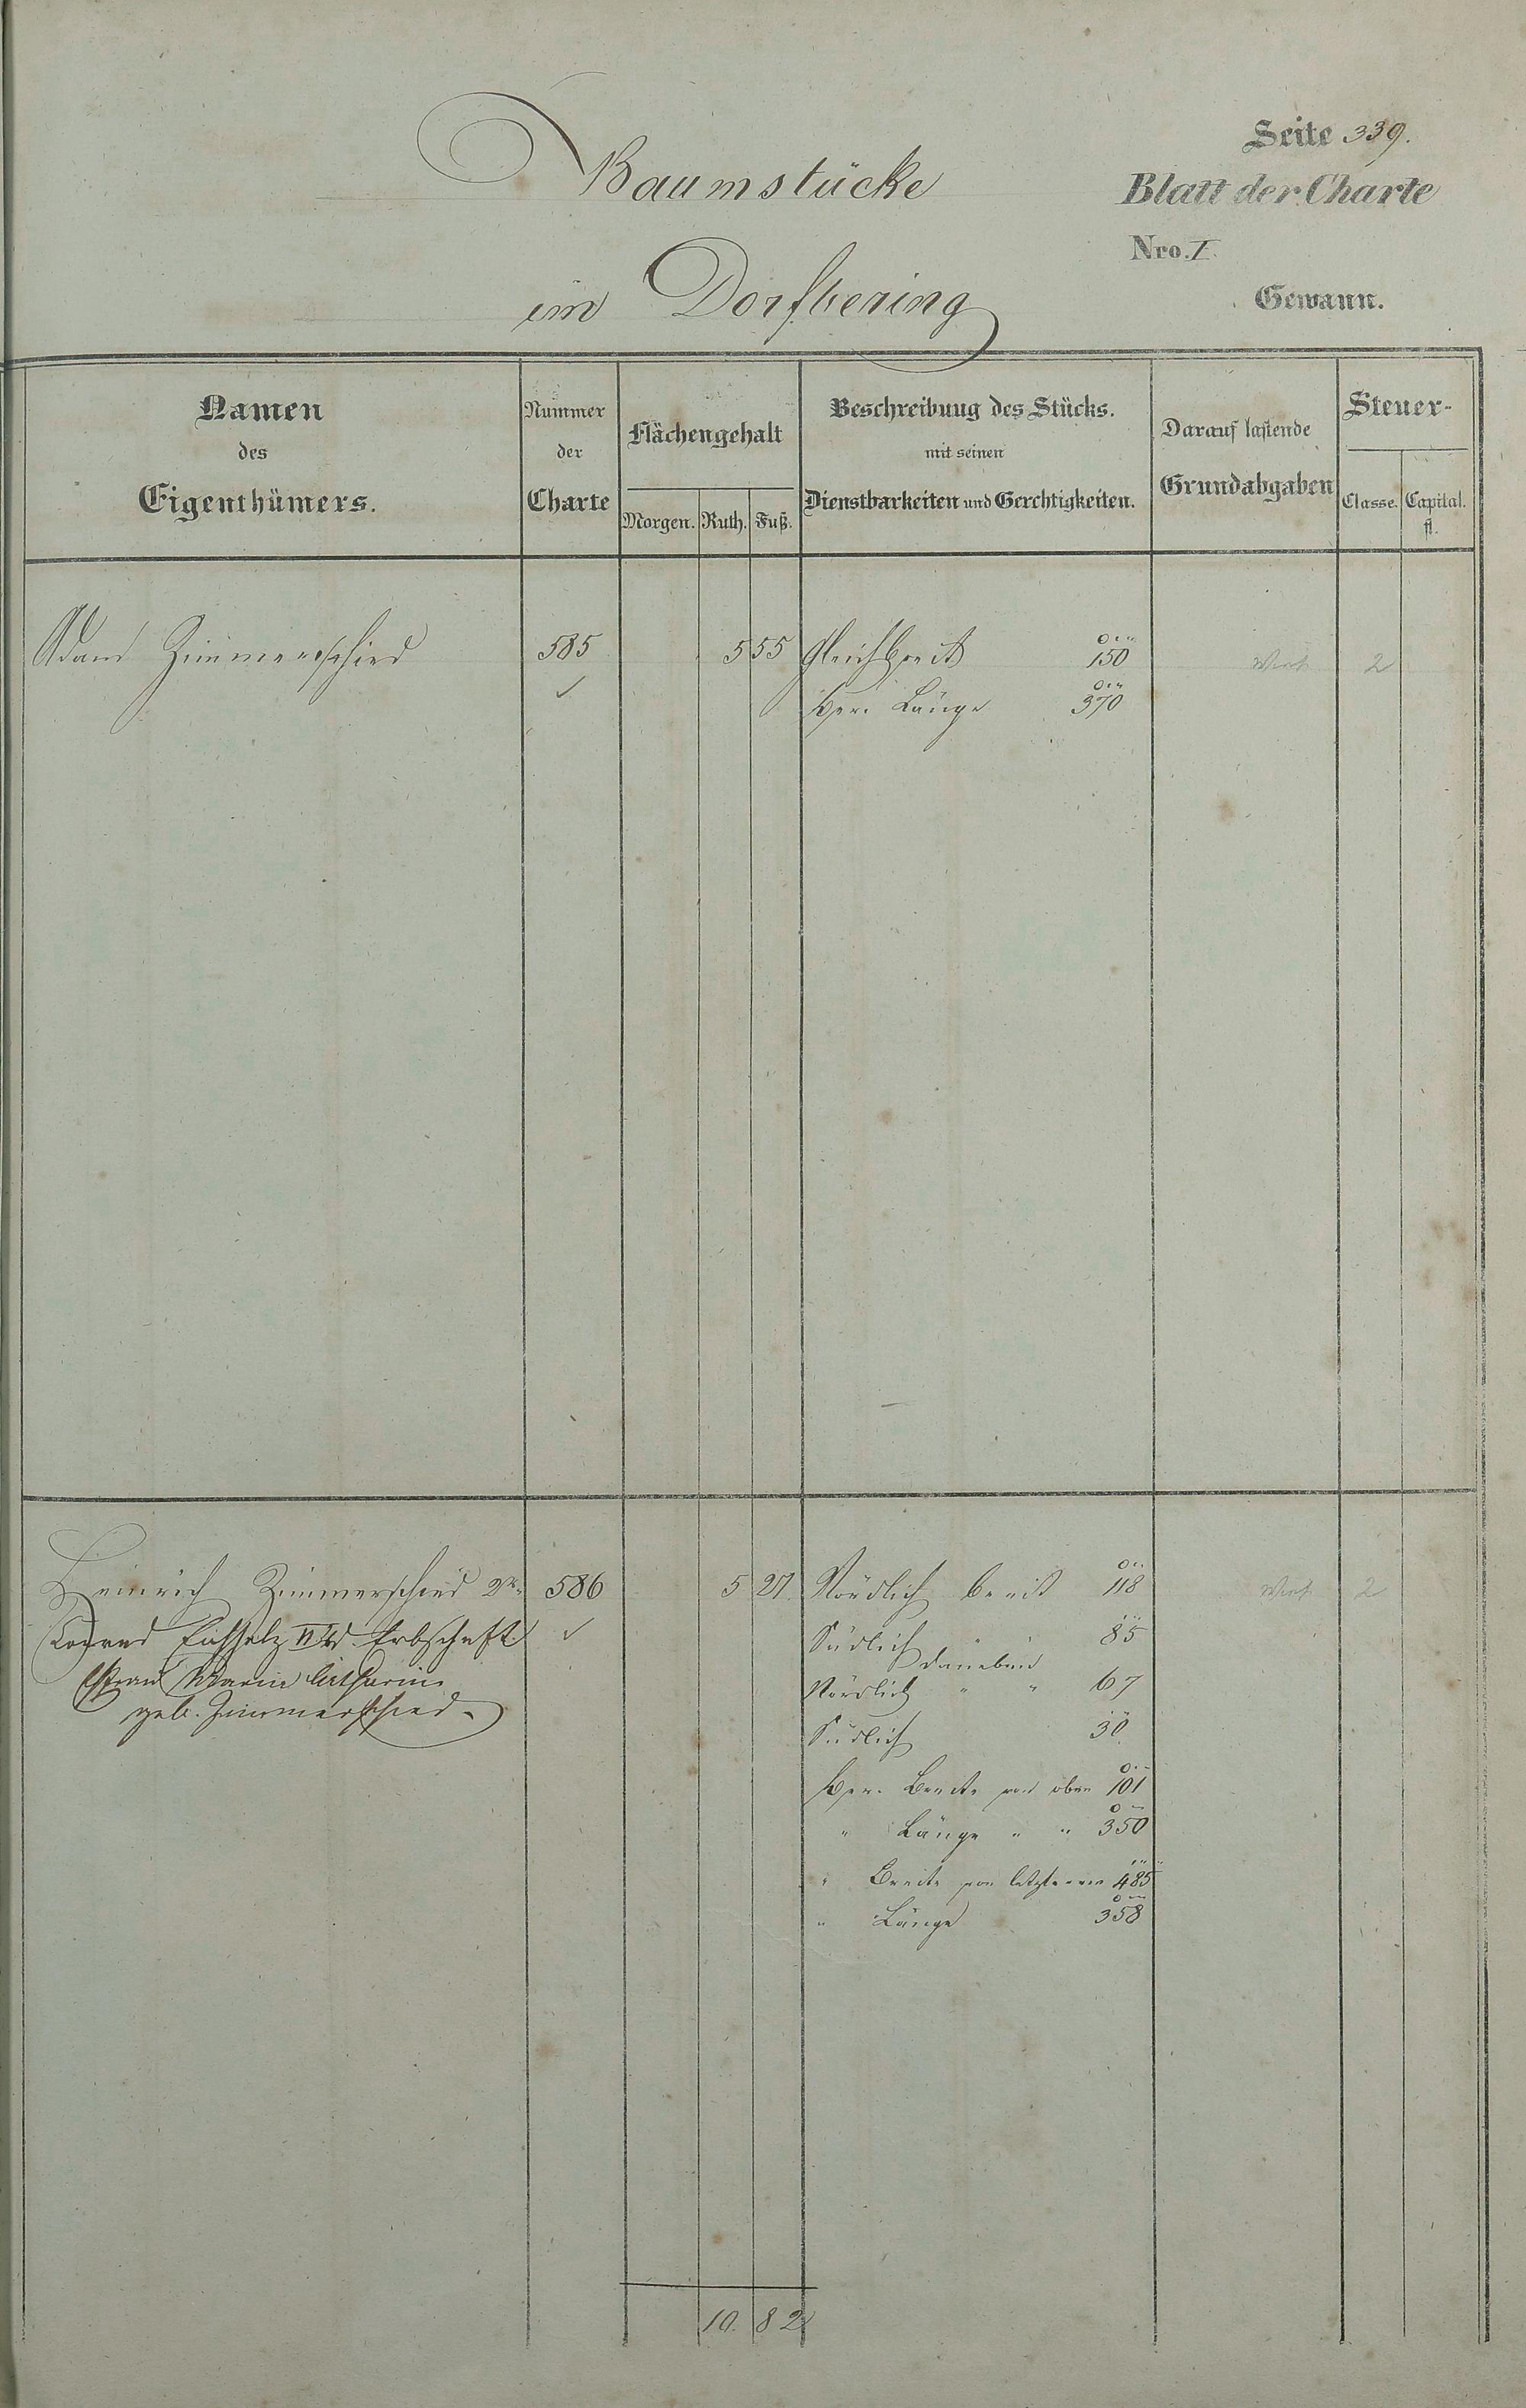 Seite 339.
Baumstücke
Blatt der Charte
Nro. I.
im Dorfbering
Gewann.
Namen des Eigenthümers.
Nummer der Charte
Flächengehalt
Morgen. Ruth. Fuß.
Beschreibung des Stücks. mit seinen Dienstbarkeiten und Gerchtigkeiten.
Darauf lastende Grundabgaben
Steuer-
Classe. Capital. fl.
Adam Zimmerschied 585 5 55 Gleichbreit 150 2
✓ Länge 370
Heinrich Zimmerschied 2r 586 5 27 Nördlich breit 118 2
Conrad II Erbschaft ✓ Südlich " " 85
daneben
Frau Marie Catharine Nördlich " " 67
geb. Zimmerschied Südlich 30
Breite von oben 101
" Länge " " 350
" Breite von letzterem 485
" Länge 358
10. 82